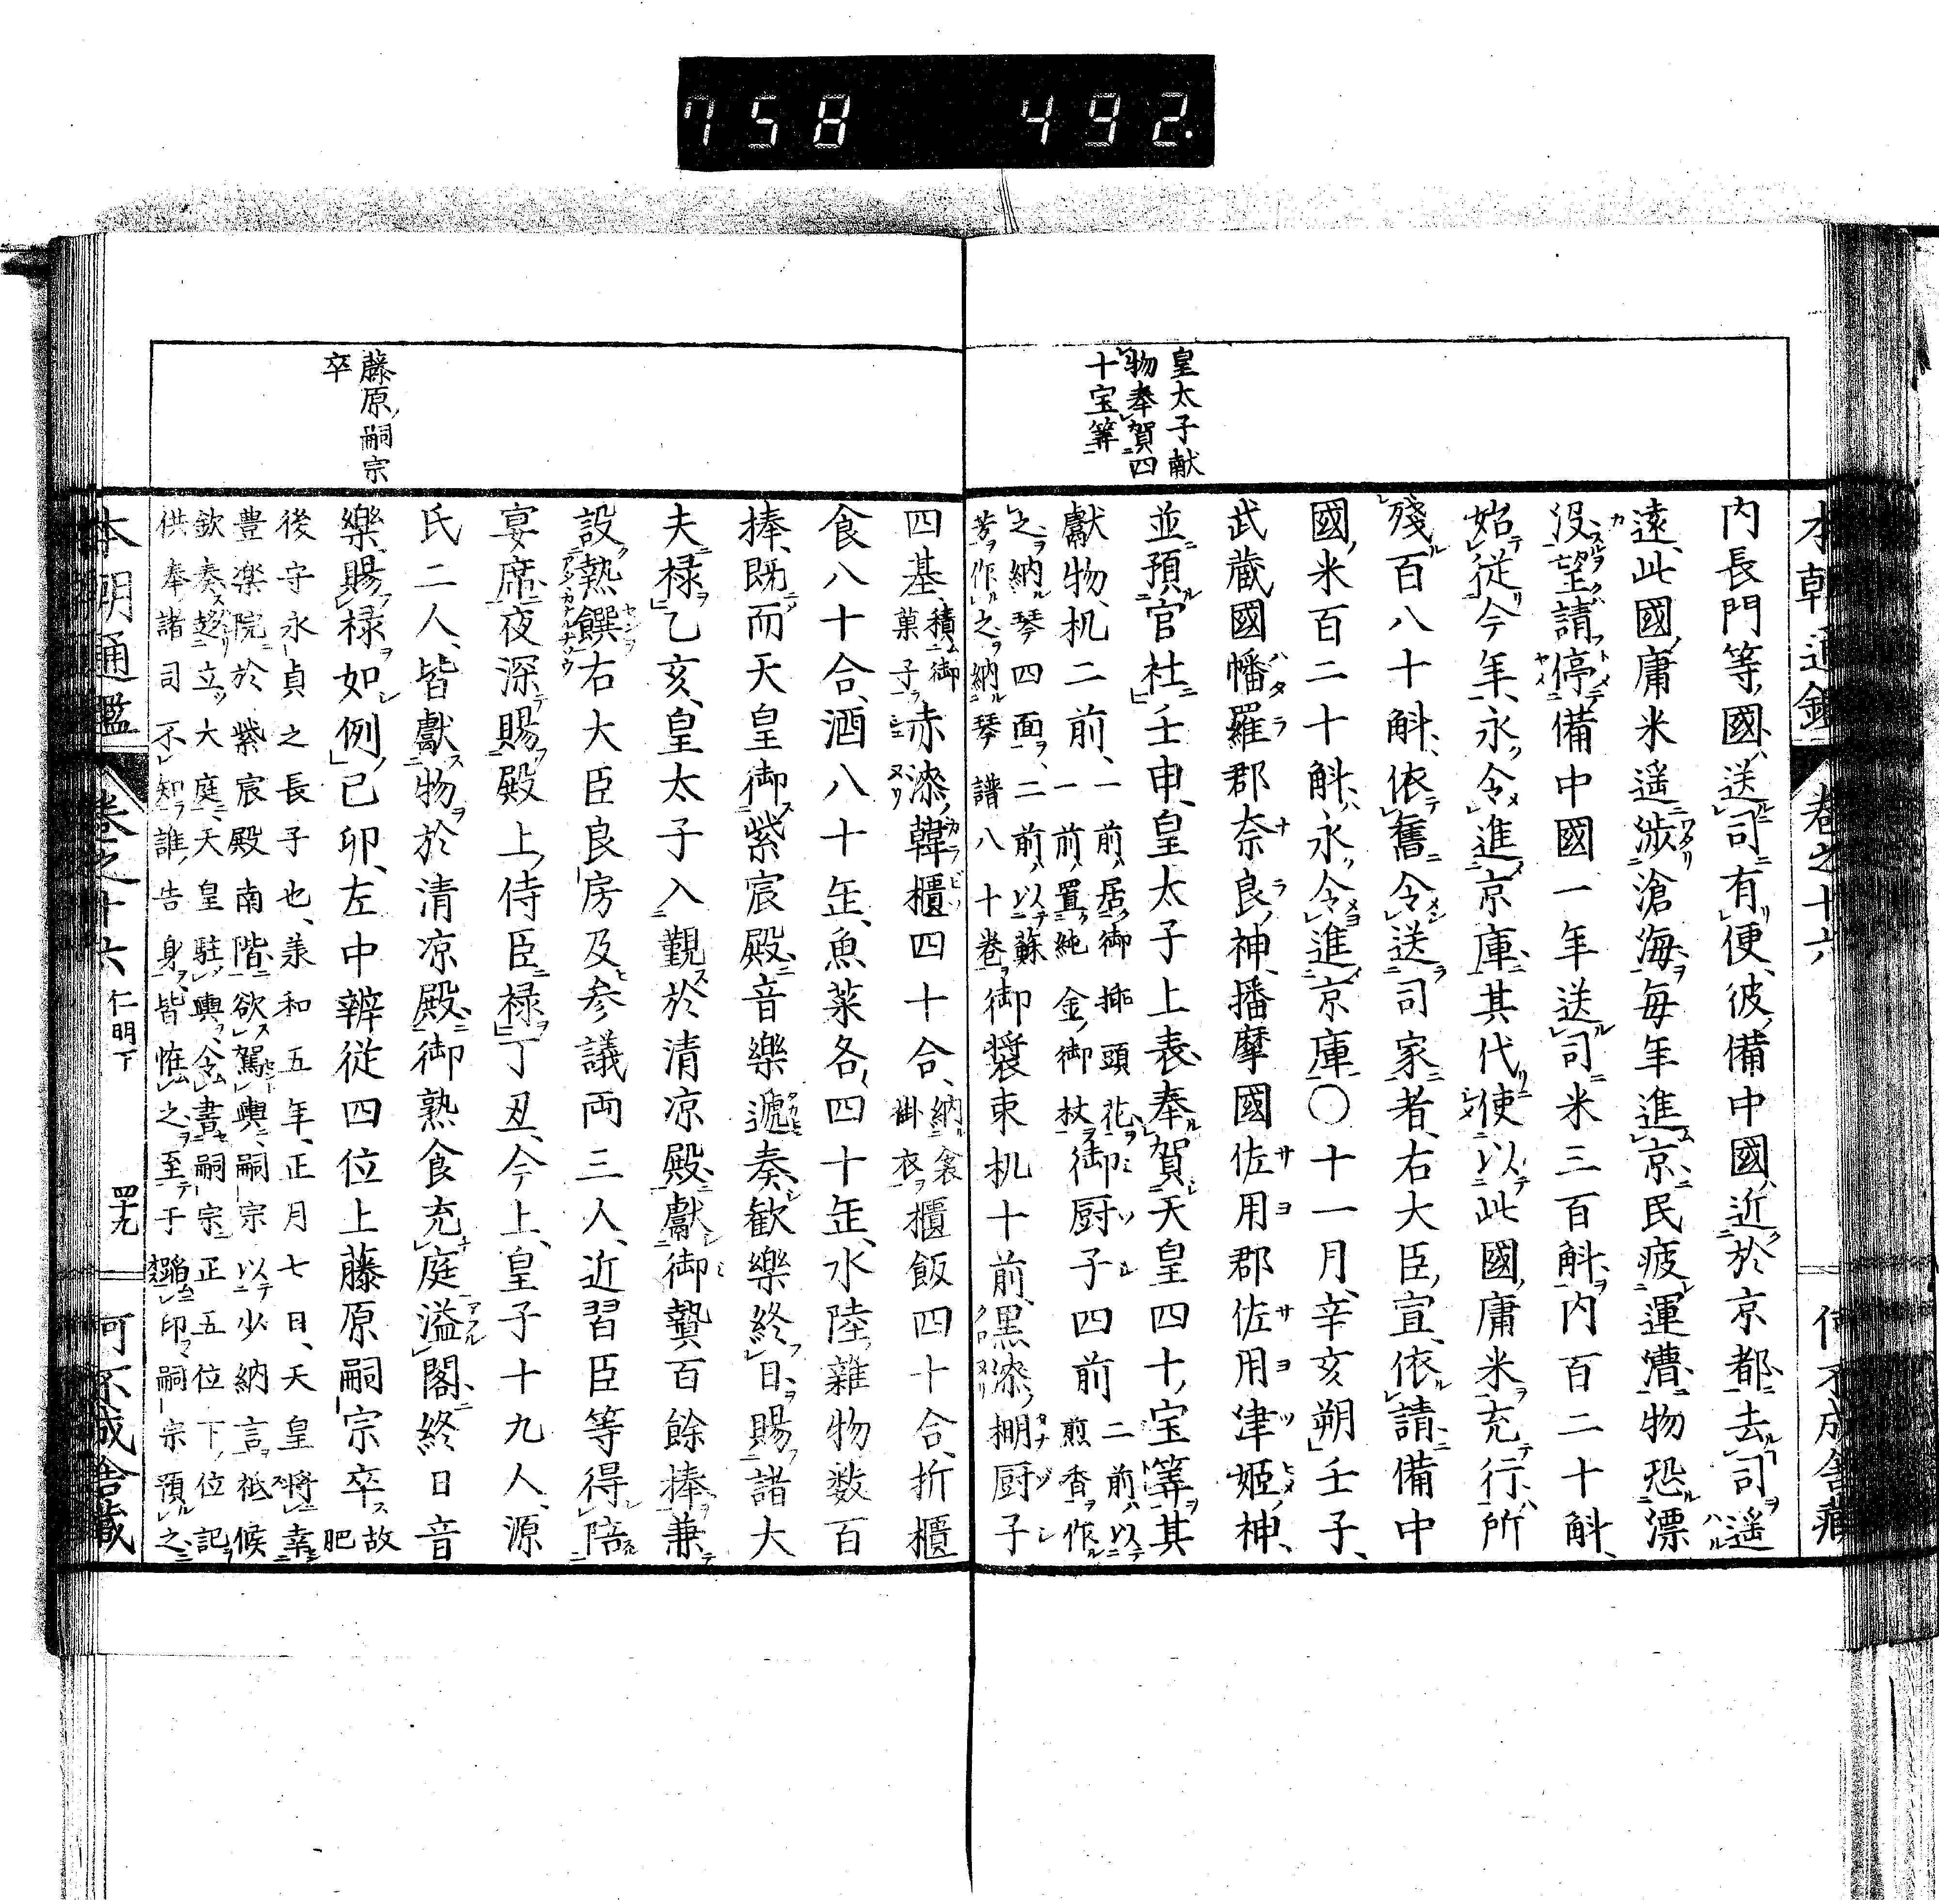 758 492.
本朝通鑑 卷之十六 何不成舎蔵
皇太子献
物奉賀四
十宝筭
内長門等國送司有便彼備中國近於京都去司遥
遠此國庸米遥渉滄海毎年進京民疲運漕物恐漂
没望請停備中國一年送司米三百斛内百二十斛
始從今年永令進京庫其代使以此國庸米充行所
殘百八十斛依舊令送司家者右大臣宣依請備中
國米百二十斛永令進京庫〇十一月辛亥朔壬子
武蔵國幡羅郡奈良神播摩國佐用郡佐用津姫神
並預官社壬申皇太子上表奉賀天皇四十宝筭其
獻物机二前一前居御挿頭花
一前置純金御杖御厨子四前二前以
煎香作
之納琴四面二前以蘇
芳作之納琴譜八十卷御装束机十前黒漆棚厨子
四基積御
菓子赤漆韓櫃四十合納衾
掛衣櫃飯四十合折櫃
食八十合酒八十缶魚菜各四十缶水陸雜物数百
捧既而天皇御紫宸殿音樂遞奏歓樂終日賜諸大
夫禄乙亥皇太子入覲於清凉殿獻御贄百餘捧兼
設熱饌右大臣良房及参議両三人近習臣等得陪
宴席夜深賜殿上侍臣禄丁丑今上皇子十九人源
氏二人皆獻物於清凉殿御熟食充庭溢閣終日音
樂賜禄如例己卯左中辨從四位上藤原嗣宗卒故
肥
後守永貞之長子也羕和五年正月七日天皇將幸
豊楽院於紫宸殿南階欲駕輿嗣宗以少納言祗候
欽奏趍立大庭天皇駐輿令書嗣宗正五位下位記
供奉諸司不知誰告身皆恠之至于蹈印嗣宗預之
藤原嗣宗
卒
本朝通鑑 卷之十六 仁明下 四十九 何不成舎蔵